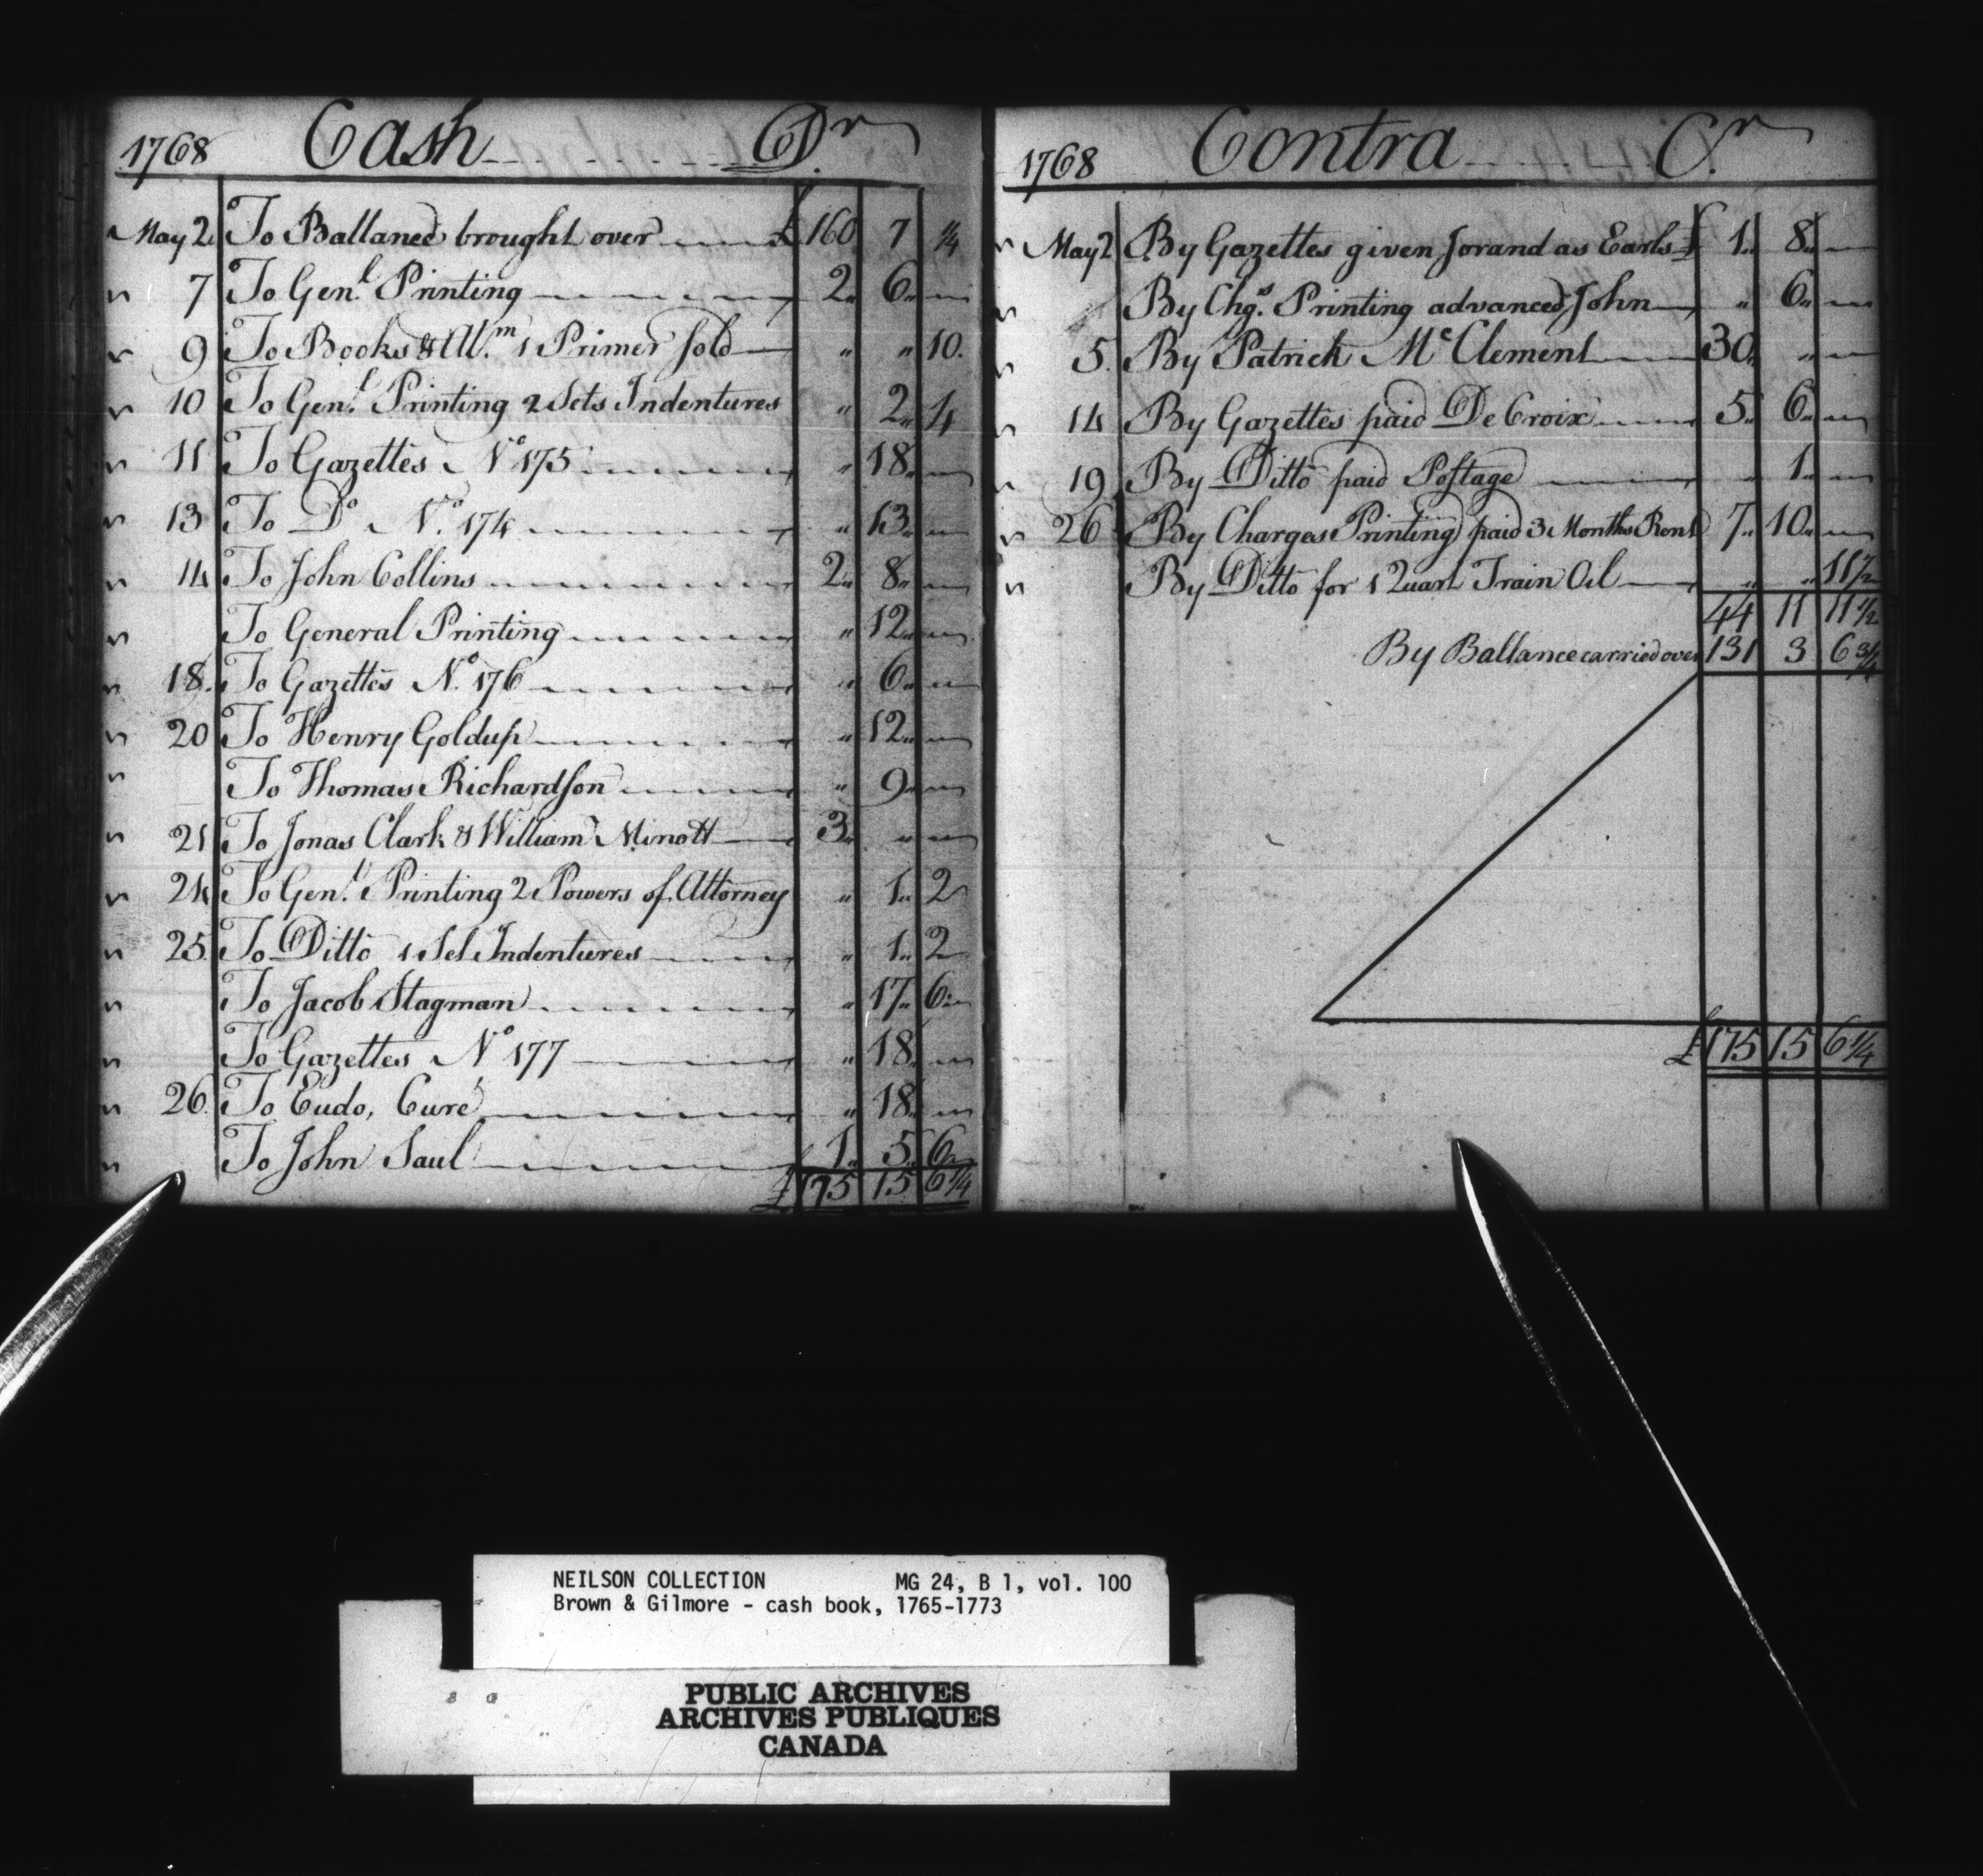 1768 Cash Dr
May 2 To Ballance brought over £ 160 7 1/4
7 To Genl. Printing 2 6
9 To Books &a. Wm. 1 Primer sold " " 10
10 To Genl. Printing 2 Sets Indentures " 2 4
11 To Gazettes No. 175 " 18
13 To Do. No. 174 " 13
14 To John Collins 2 8
To General Printing " 12
18 To Gazettes No. 176 " 6
20 To Henry Goldup " 12
To Thomas Richardson " 9
21 To Jonas Clark & William Minott 3 "
24 To Genl. Printing 2 Powers of Attorney " 1 2
25 To Ditto 1 Set Indentures " 1 2
To Jacob Stagman " 17 6
To Gazettes No. 177 " 18
26 To Eudo, Curé " 18
To John Saul 1 5 6
£ 175 15 6 1/4
1768 Contra Cr.
May 2 By Gazettes given Jorand as Earls £ 1 8
By Chgs. Printing advanced John " 6
5 By Patrick McClement 30 "
14 By Gazettes paid De Croix 5 6
19 By Ditto paid Postage " 1
26 By Charges Printing paid 3 Months Rent 7 10
By Ditto for 1 Quart Train Oil " " 11 1/2
44 11 11 1/2
By Ballance carried over 131 3 6 3/4
£ 175 15 6 1/4
NEILSON COLLECTION MG 24, B 1, vol. 100
Brown & Gilmore - cash book, 1765-1773
PUBLIC ARCHIVES
ARCHIVES PUBLIQUES
CANADA